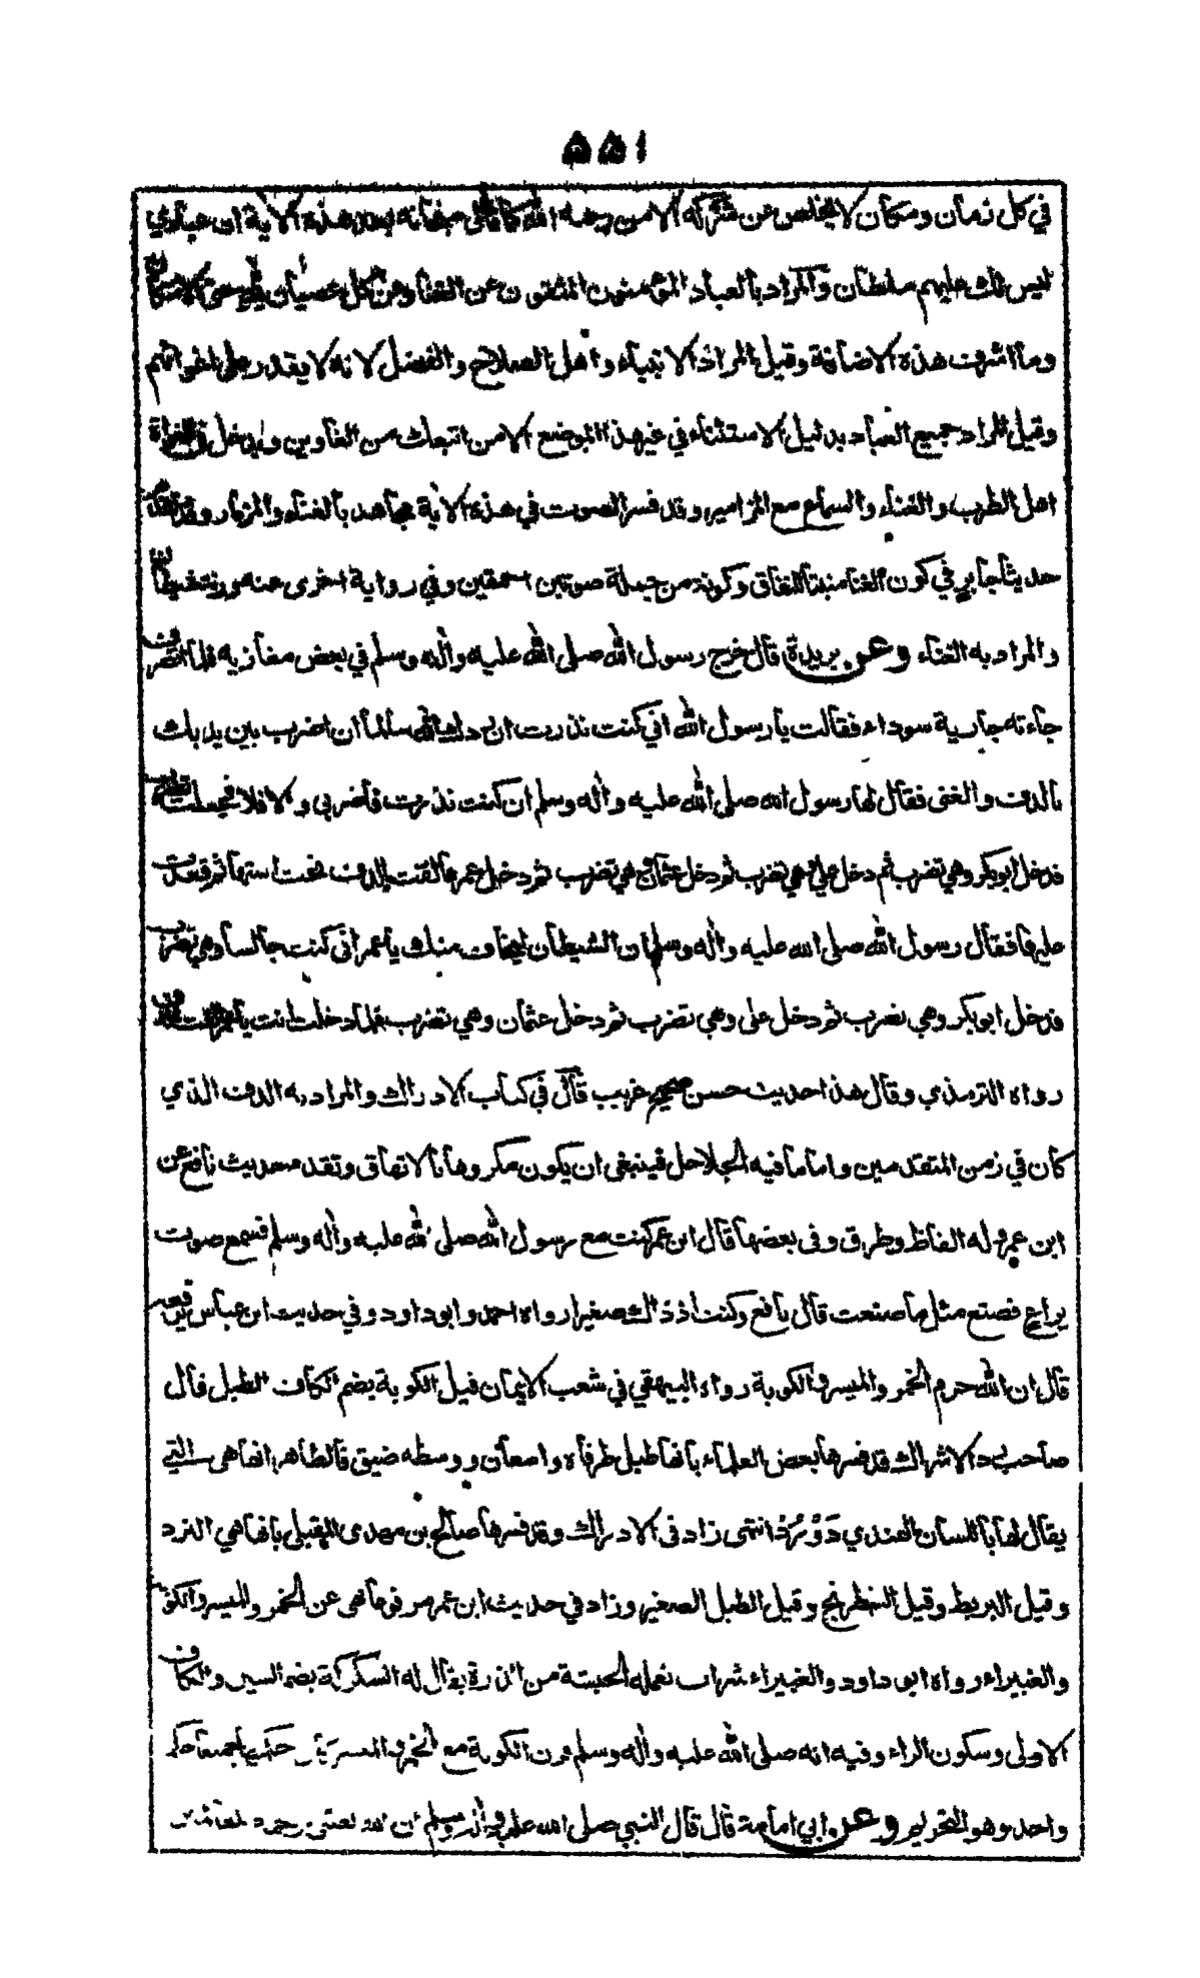 ٥٥١
في كل زمان ومكان لا يخلص عن شركه الا من رحمه الله كما قال سبحانه بعد هذه الآية ان عبادي
ليس لك عليهم سلطان والمراد بالعباد المؤمنون المتقون عن الغناء وعن كل عصيان
وما اشرف هذه الاضافة وقيل المراد الانبياء واهل الصلاح والفضل لانه لا يقدر على اغوائهم
وقيل المراد جميع العباد بدليل الاستثناء في غير هذا الموضع الا من اتبعك من الغاوين ويدخل في الغواة
اهل الطرب والغناء والسماع مع المزامير وقد فسر الصوت في هذه الآية مجاهد بالغناء والمزمار وقد تقدم
حديث جابر في كون الغنا منبتا للنفاق وكونه من جملة صوتين احمقين وفي رواية اخرى عنه
والمراد به الغناء وعن بريدة قال خرج رسول الله صلى الله عليه وأله وسلم في بعض مغازيه فلما انصرف
جاءته جارية سوداء فقالت يا رسول الله اني كنت نذرت ان ردك الله سالما ان اضرب بين يديك
بالدف والغنى فقال لها رسول الله صلى الله عليه وأله وسلم ان كنت نذرت فاضربي والا فلا فجعلت تضرب
فدخل ابو بكر وهي تضرب ثم دخل علي وهي تضرب ثم دخل عثمان وهي تضرب ثم دخل عمر فالقت الدف تحت استها ثم قعدت
عليها فقال رسول الله صلى الله عليه وأله وسلم ان الشيطان ليخاف منك يا عمر اني كنت جالسا وهي تضرب
فدخل ابو بكر وهي تضرب ثم دخل على وهي تضرب ثم دخل عثمان وهي تضرب فلما دخلت انت يا عمر القت الدف
رواه الترمذي وقال هذا حديث حسن صحيح غريب قال في كتاب الادراك والمراد به الدف الذي
كان في زمن المتقدمين واما ما فيه الجلاجل فينبغي ان يكون مكروها بالاتفاق وتقدم حديث نافع عن
ابن عمر وله الفاظ وطرق وفي بعضها قال ابن عمر كنت مع رسول الله صلى الله عليه وأله وسلم فسمع صوت
يراع فصنع مثل ما صنعت قال نافع وكنت اذ ذاك صغيرا رواه احمد وابو داود وفي حديث ابن عباس يرفعه
قال ان الله حرم الخمر والميسر والكوبة رواه البيهقي في شعب الايمان قيل الكوبة بضم الكاف الطبل قال
صاحب الادراك قد فسرها بعض العلماء بانها طبل طرفاه واسعان ووسطه ضيق فالظاهر انها هي التي
يقال لها باللسان الهندي دَوْرُو انتهى زاد في الادراك وقد فسرها صالح بن مهدي المقبلي بانها هي النرد
وقيل البربط وقيل الشطرنج وقيل الطبل الصغير وزاد في حديث ابن عمر مرفوعا نهى عن الخمر والميسر والكوبة
والغبيراء رواه ابو داود والغبيراء شراب تعمله الحبشة من الذرة يقال له السكركة بضم السين والكاف
الاولى وسكون الراء وفيه انه صلى الله عليه وأله وسلم قرن الكوبة مع الخمر والميسر
واحد وهو التحريم وعن ابي امامة قال قال النبي صلى الله عليه وأله وسلم ان الله بعثني رحمة للعالمين